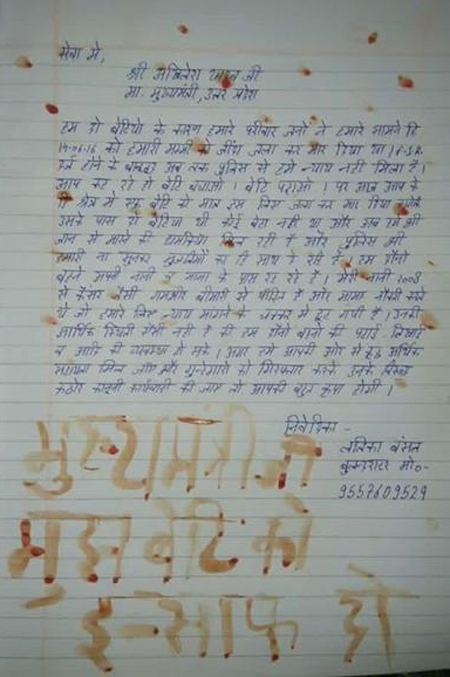 सेवा में,
श्री अखिलेश यादव जी
मा. मुख्यमंत्री, उत्तर प्रदेश
हम दो बेटियो के कारण हमारे परिवार जनों ने हमारे सामने दि
14-06-16 को हमारी मम्मी को जिंदा जला कर मार दिया था। F.I.R
दर्ज होने के बावजूद अब तक पुलिस से हमे न्याय नहीं मिला है।
आप कह रहे हो बेटि बचाओ। बेटि पढाओ। पर आज आप के
ही क्षेत्र में एक बेटि को मात्र इस लिए जला कर मार दिया क्योंकि
उसके पास दो बेटियां थी कोई बेटा नही था और अब हमें भी
जान से मारने की धमकियां मिल रही है और पुलिस भी
हमारी ना सुनकर मुजरिमों का ही साथ दे रही है। हम दोनों
बहने अपनी नानी व मामा के पास रह रहे है। मेरी नानी 2008
से कैंसर जैसी गम्भीर बीमारी से पीड़ित है और मामा नौकरी करते
थे जो हमारे लिए न्याय मांगने के चक्कर में छूट गयी है। उनकी
आर्थिक स्थिती ऐसी नही है की हम दोनो बहनो की पढाई-लिखाई
व आदि की व्यवस्था हो सके। अगर हमे आपकी ओर से कुछ आर्थिक
सहायता मिल जाए और गुनेगारो को गिरफ्तार करके उनके विरुध
कठोर कानूनी कार्यवाही की जाए तो आपकी बहुत कृपा होगी।
निवेदिका -
लतिका बंसल
बुलन्दशहर मो०-
9557609529
मुख्यमंत्री जी
मुझ बेटि को
इन्साफ दो